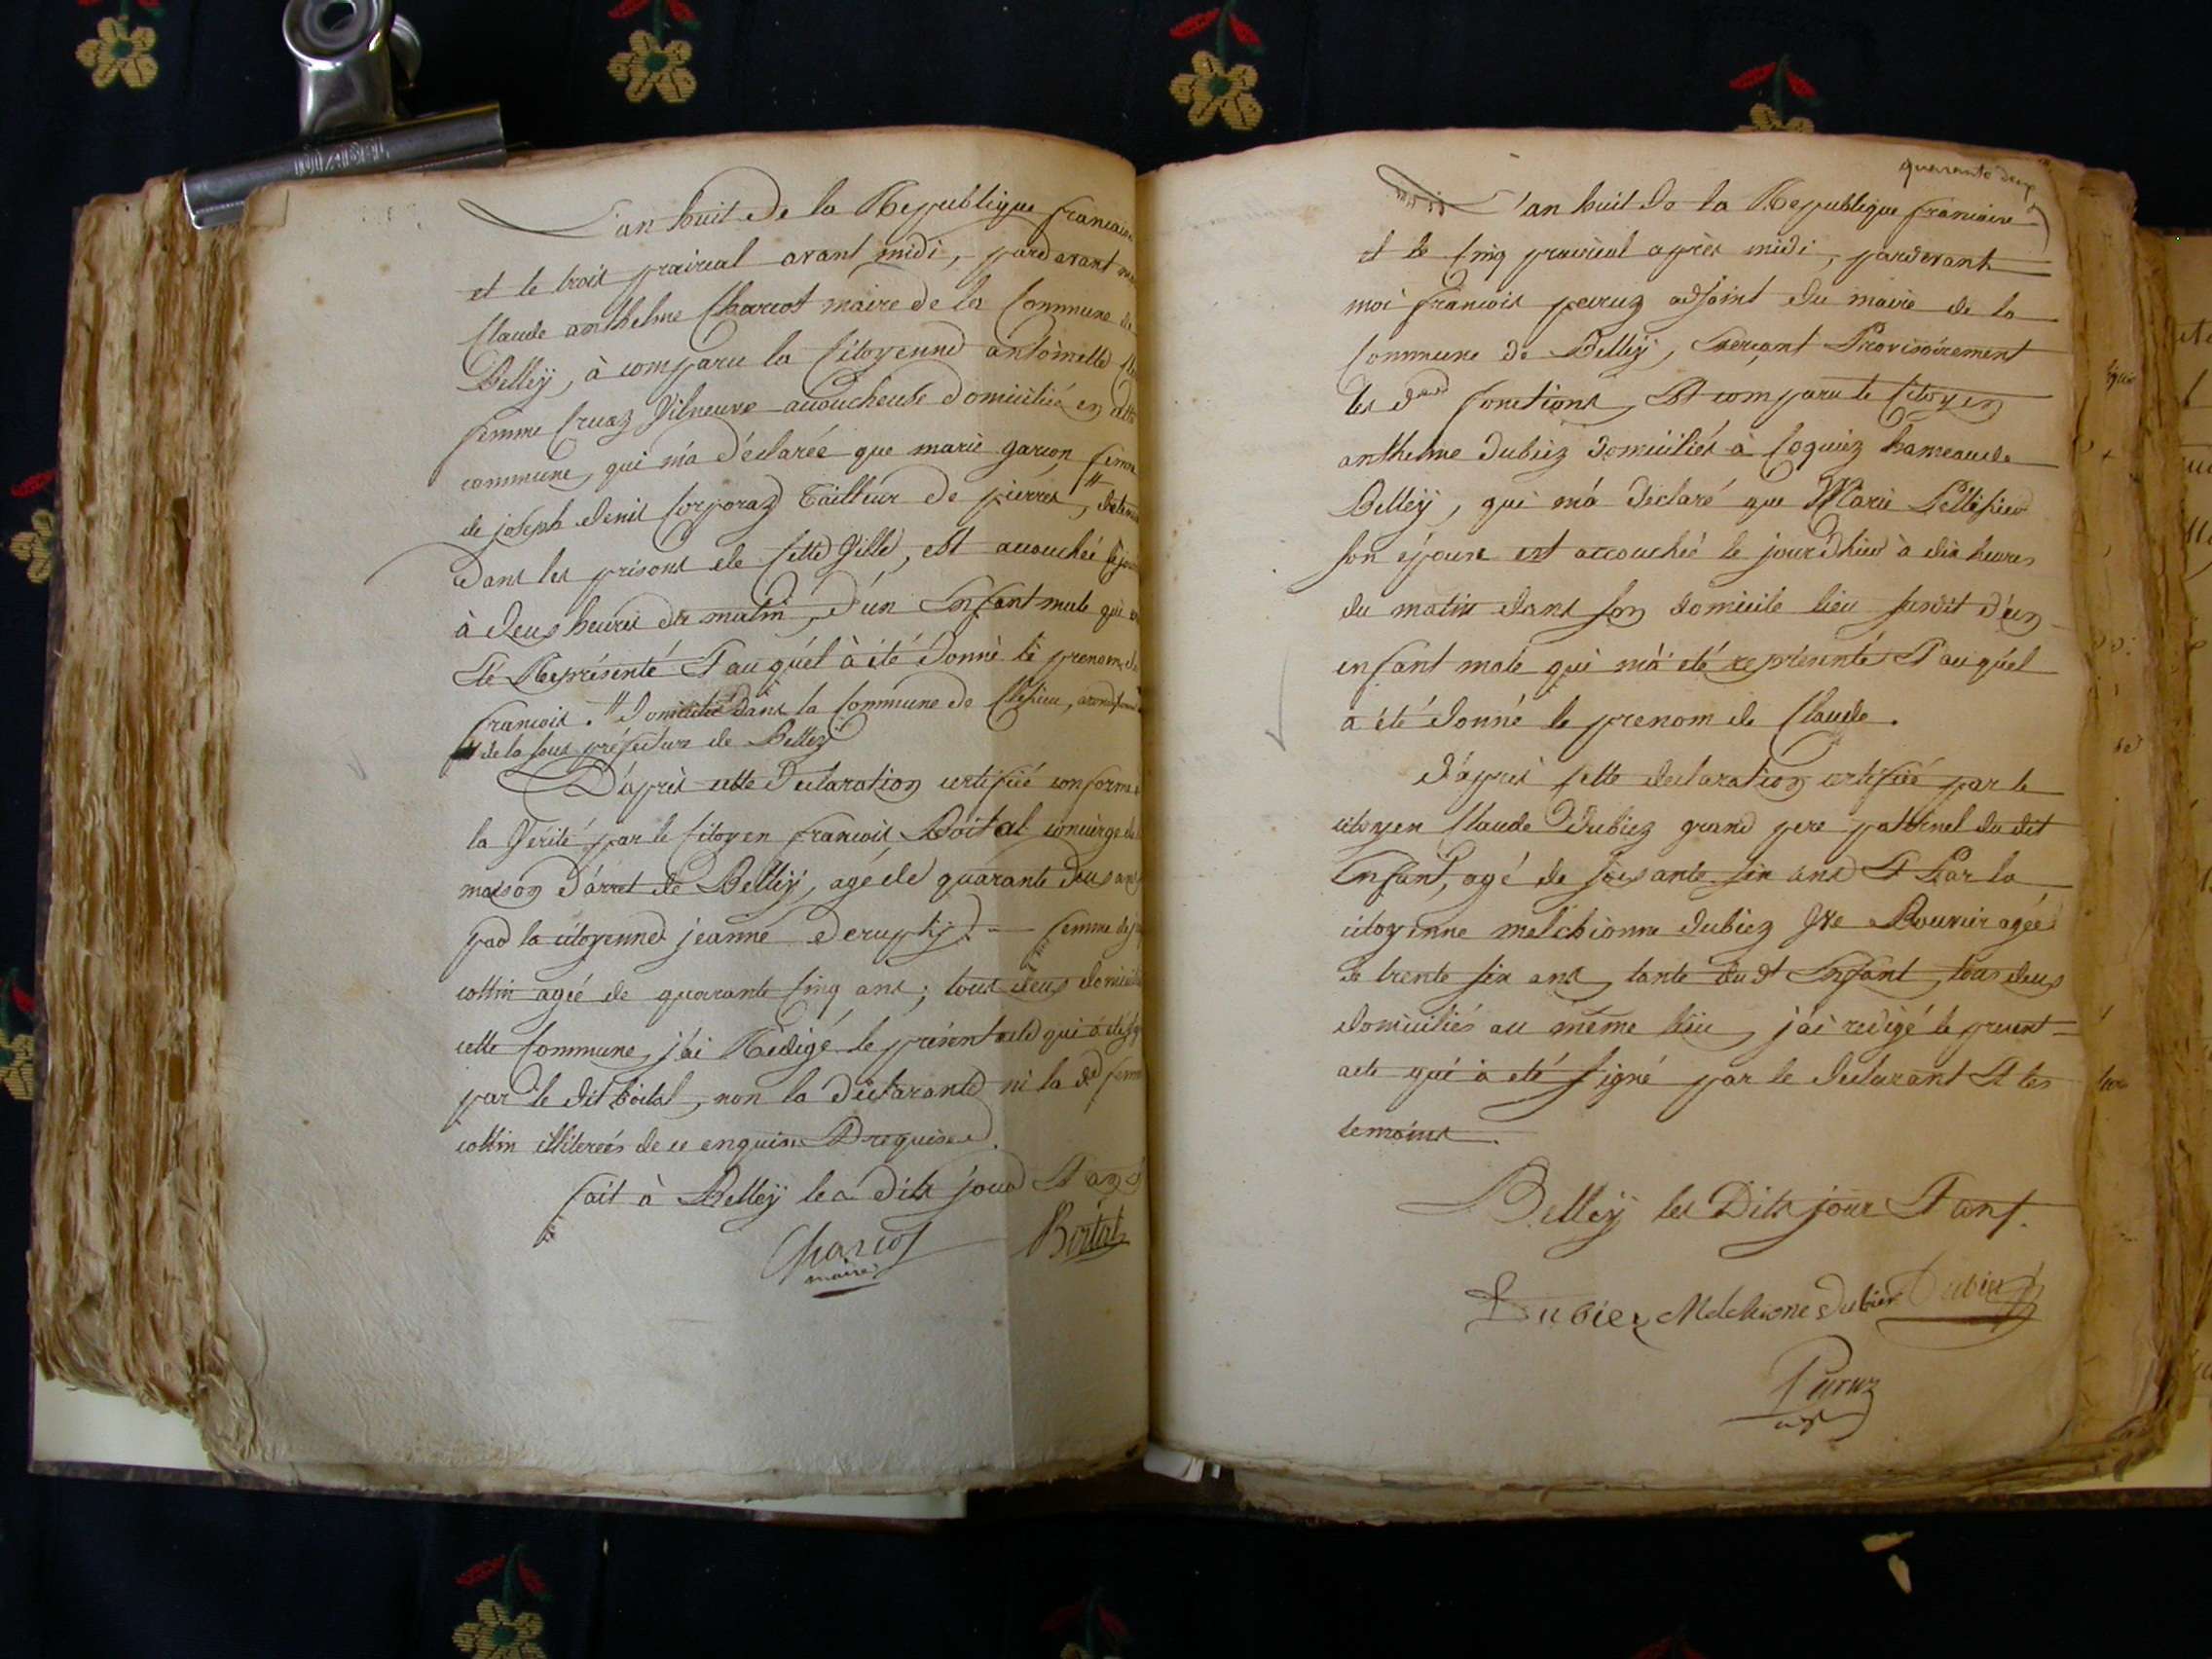 L'an huit de la Republique francaise
et le trois prairial avant midi, pardevant
Claude anthelme Charcot maire de la Commune de
Belleÿ, à comparu la Citoyenne antoinette
femme Cruaz Vilneuve accoucheuse domiciliée en
commune, qui m'a déclarée que marie garçon femme
de joseph denis Corporaz Tailleur de pierres, " detenue
dans les prisons de Cette Ville, est accouchée
à deux heures du matin, d'un Enfant male qui
été Représenté Et auquel à été donné le prenom de
francois. " domicilié dans la Commune de
de la sous préfecture de Belley
D'après cette Declaration certifiée conforme
la Vérité par le Citoyen francois Boital concierge de
maison d'arret de Belleÿ, agé de quarante deux ans
par la citoyenne jeanne femme de
cottin agée de quarante Cinq ans; tous deux
cette Commune, j'ai Rédigé le présent acte qui a été
par le dit Boital, non la déclarante ni la de femme
cottin illiterées de ce enquises Et requises.
fait à Belleÿ les dits jour Et an
Charcot Boital
maire
quarante deux
L'an huit de la Republique francaise
et le Cinq prairial après midi, pardevant
moi francois peruz adjoint du maire de la
Commune de Belleÿ, Exerçant Provisoirement
les des fonctions, Est comparu le Citoyen
anthelme Dubiez domiciliés à Coquiez hameau de
Belleÿ, qui m'a déclaré que Marie
son épouse est accouchée le jour d'hier à dix heures
du matin dans son domicile lieu susdit d'un
enfant male qui m'à été représenté Et auquel
a été donné le prenom de Claude.
d'après Cette declaration certifiée par le
citoyen Claude Dubiez grand pere paternel du dit
Enfant, agé de soixante six ans Et Par la
citoyenne melchionne Dubiez Vve Bouvier agée
de trente six ans, tante dudt Enfant, tous deux
domiciliés au même lieu, j'ai redigé le present
acte qui à été signé par le declarant Et les
temoins.
Belleÿ les Dits jour Et an.
Dubiez Melchione Dubiez Dubiez
Peruz
adj